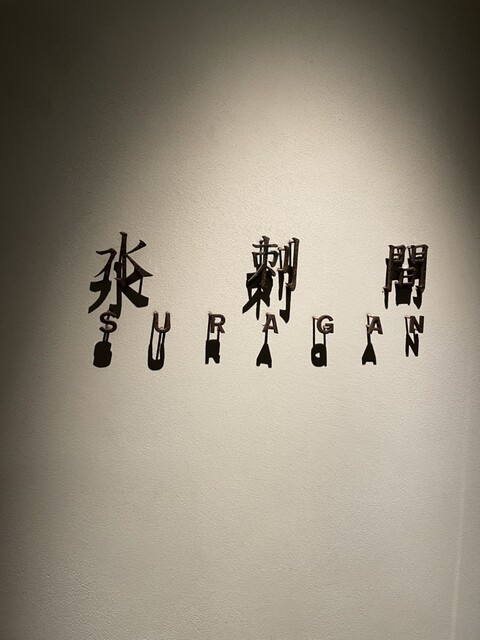 水剌間
SURAGAN